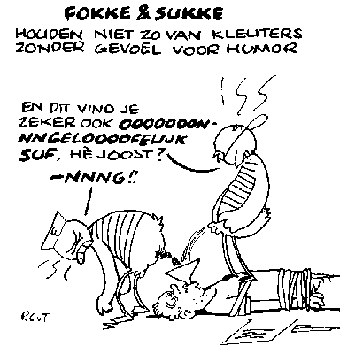 FOKKE & SUKKE
HOUDEN NIET ZO VAN KLEUTERS
ZONDER GEVOEL VOOR HUMOR
EN DIT VIND JE
ZEKER OOK OOOOOOON-
NNGELOOOOFELIJK
SUF, HÈ JOOST?
—NNNG!!
RGvT